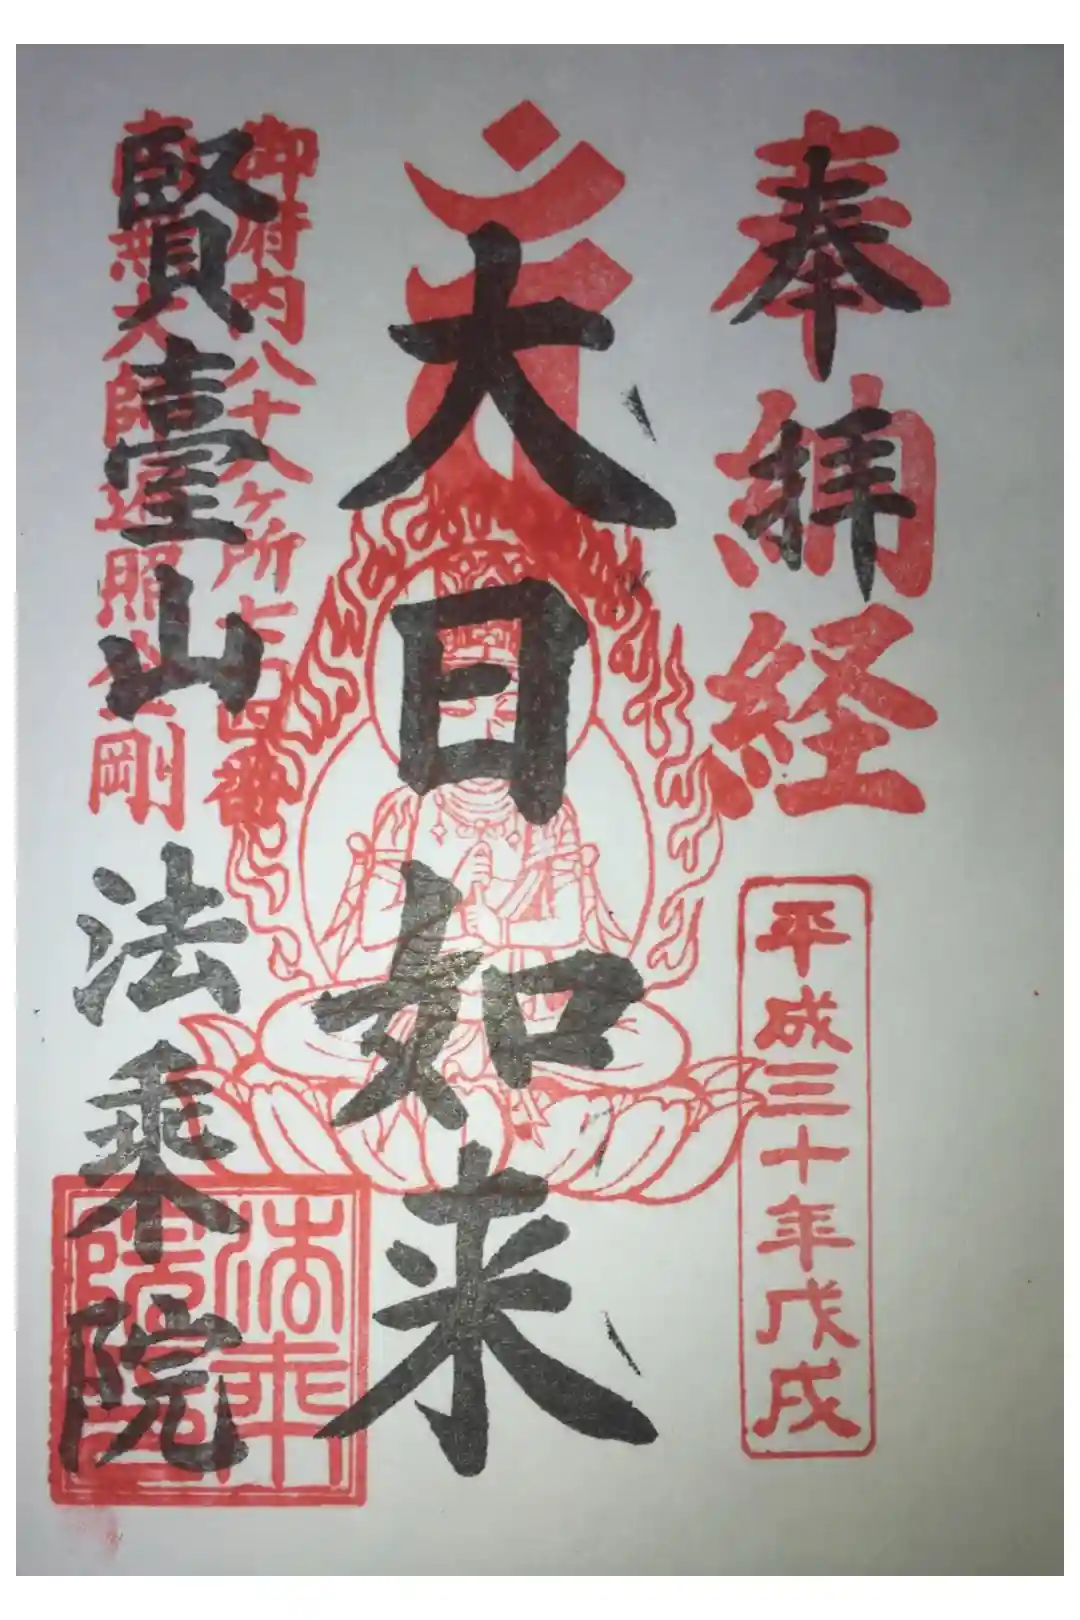 奉拝
奉納経
平成三十年戊戌
大日如来
御府内八十八ヶ所七十四番
南無大師遍照金剛
賢臺山
法乗院
法乗
院